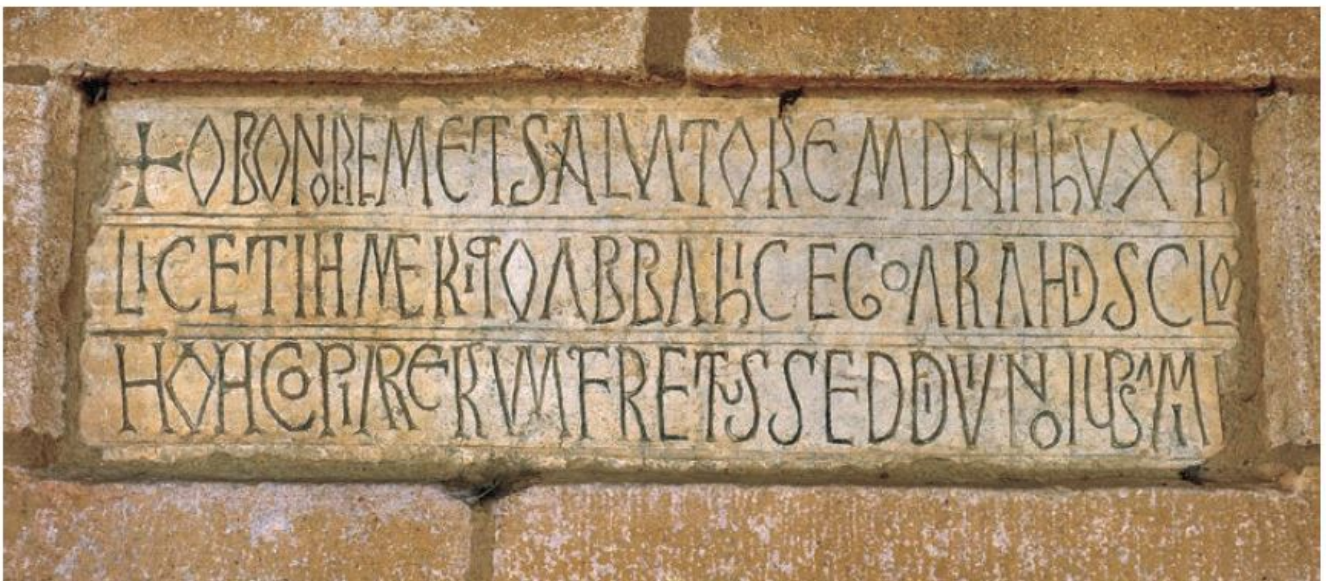 + OBONOREMETSALVATOREMDNIIHVXPI
LICETIHMERITOABBAHICEGOARAHDISCLO
HOHCOPIARERUMFRETUSSEDDIVINOIUSSAMI